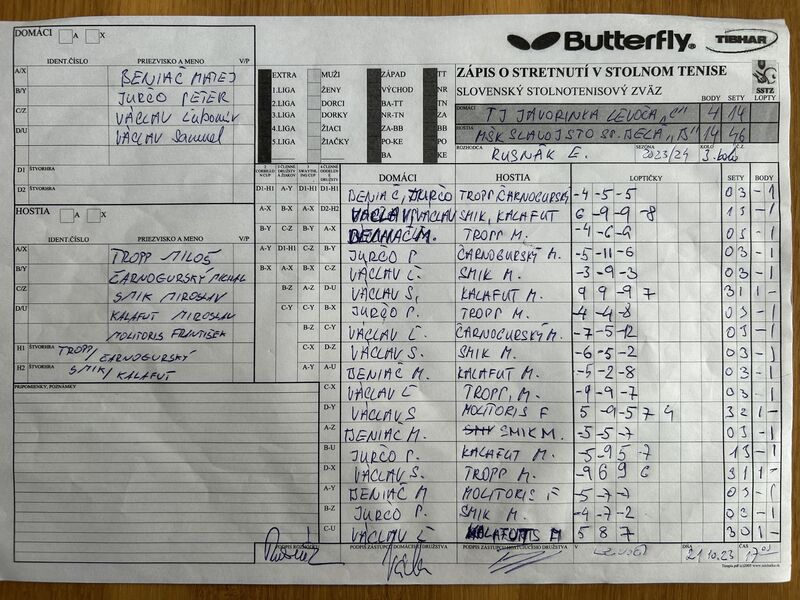 DOMÁCI A X
IDENT.ČÍSLO PRIEZVISKO A MENO V/P
A/X BENIAČ MATEJ
B/Y JURČO PETER
C/Z VÁCLAV Ľubomír
D/U VÁCLAV Samuel
D1 ŠTVORHRA
D2 ŠTVORHRA
HOSTIA A X
IDENT.ČÍSLO PRIEZVISKO A MENO V/P
A/X TROPP MILOŠ
B/Y ČARNOGURSKÝ MICHAL
C/Z SMIK MIROSLAV
D/U KALAFUT MIROSLAV
MOLITORIS FRANTIŠEK
H1 ŠTVORHRA TROPP/ČARNOGURSKÝ
H2 ŠTVORHRA SMIK/KALAFUT
PRIPOMIENKY, POZNÁMKY
Butterfly TIBHAR
EXTRA MUŽI ZÁPAD TT
1.LIGA ŽENY VÝCHOD NR
2.LIGA DORCI BA-TT TN
3.LIGA DORKY NR-TN ZA
4.LIGA ŽIACI ZA-BB BB
5.LIGA ŽIAČKY PO-KE PO
BA KE
ZÁPIS O STRETNUTÍ V STOLNOM TENISE
SLOVENSKÝ STOLNOTENISOVÝ ZVÄZ
SSTZ
BODY SETY LOPTY
DOMÁCI TJ JAVORINKA LEVOČA „C" 4 14
HOSTIA MŠK SLAVOJ STO SP. BELA "B" 14 46
ROZHODCA RUSNÁK E. SEZÓNA 2023/24 KOLO 3. kolo Č.Z.
DOMÁCI HOSTIA LOPTIČKY SETY BODY
D1-H1 A-Y D1-H1 D1-H1 BENIAČ, JURČO TROPP ČARNOGURSKÝ -4 -5 -5 03 -1
A-X B-X A-X D2-H2 VÁCLAV, VÁCLAV SMIK, KALAFUT 6 -9 -9 -8 13 -1
B-Y C-Z B-Y A-X BENIAČ M. TROPP M. -4 -6 -9 03 -1
A-Y D1-H1 C-Z B-Y JURČO P. ČARNOGURSKÝ M. -5 -11 -6 03 -1
B-X A-X B-X C-Z VÁCLAV Ľ. SMIK M. -3 -9 -3 03 -1
B-Z A-Z D-U VÁCLAV S, KALAFUT M. 9 9 -9 7 31 1-
C-Y C-Y B-X JURČO P. TROPP M. -4 -4 -8 03 -1
B-Z C-Y VÁCLAV Ľ. ČARNOGURSKÝ M. -7 -5 -12 03 -1
C-X D-Z VÁCLAV S. SMIK M. -6 -5 -2 03 -1
A-Y A-U BENIAČ M. KALAFUT M. -5 -2 -8 03 -1
C-X VÁCLAV Ľ TROPP, M. -9 -9 -7 03 -1
D-Y VÁCLAV S MOLITORIS F 5 -9 -5 7 4 32 1-
A-Z BENIAČ M. SMIK M. -5 -5 -7 03 -1
B-U JURČO P. KALAFUT M. -5 -9 5 -7 13 -1
D-X VÁCLAV S. TROPP M. -9 6 9 6 31 1-
A-Y BENIAČ M MOLITORIS F -5 -7 -7 03 -1
B-Z JURČO P. SMIK M. -4 -7 -2 03 -1
C-U VÁCLAV Ľ 5 8 7 30 1-
PODPIS ROZHODCU PODPIS ZÁSTUPCU DOMÁCEHO DRUŽSTVA PODPIS ZÁSTUPCU HOSŤUJÚCEHO DRUŽSTVA V DŇA 21.10.23 ČAS 17 00